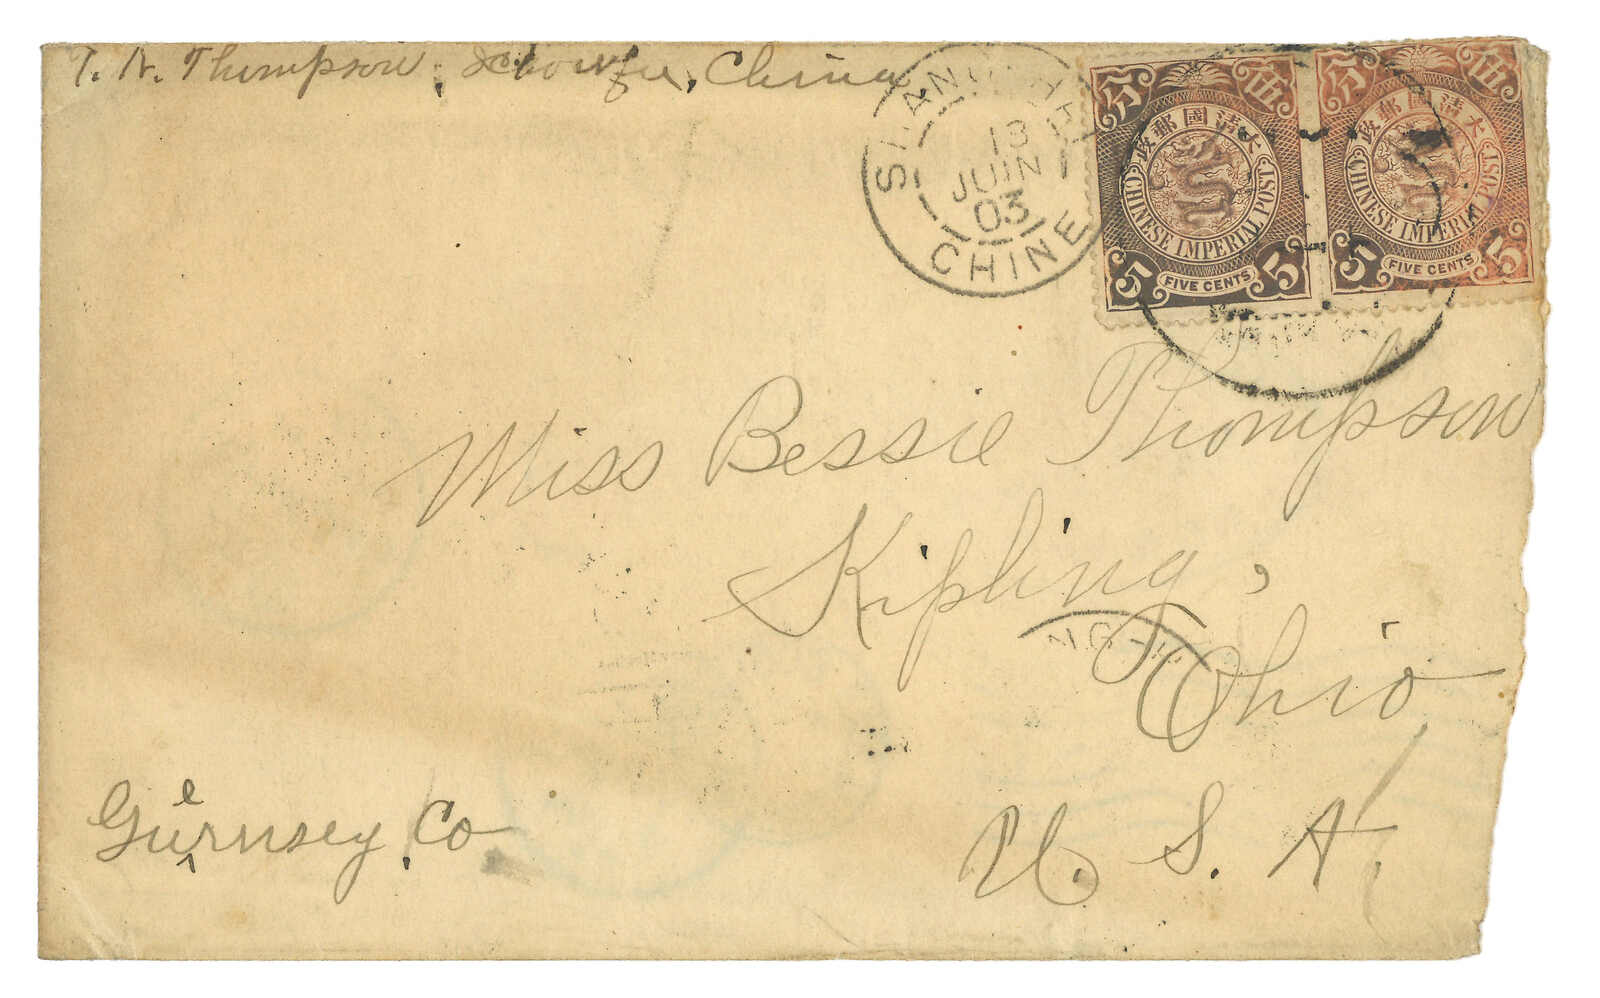 T. N. Thompson, China
SHANGHAI
13
JUIN
03
CHINE
分 伍
大清國郵政
CHINESE IMPERIAL POST
5 FIVE CENTS 5
分 伍
大清國郵政
CHINESE IMPERIAL POST
5 FIVE CENTS 5
Miss Bessie Thompson
Kipling,
Ohio
U. S. A.
Guernsey Co